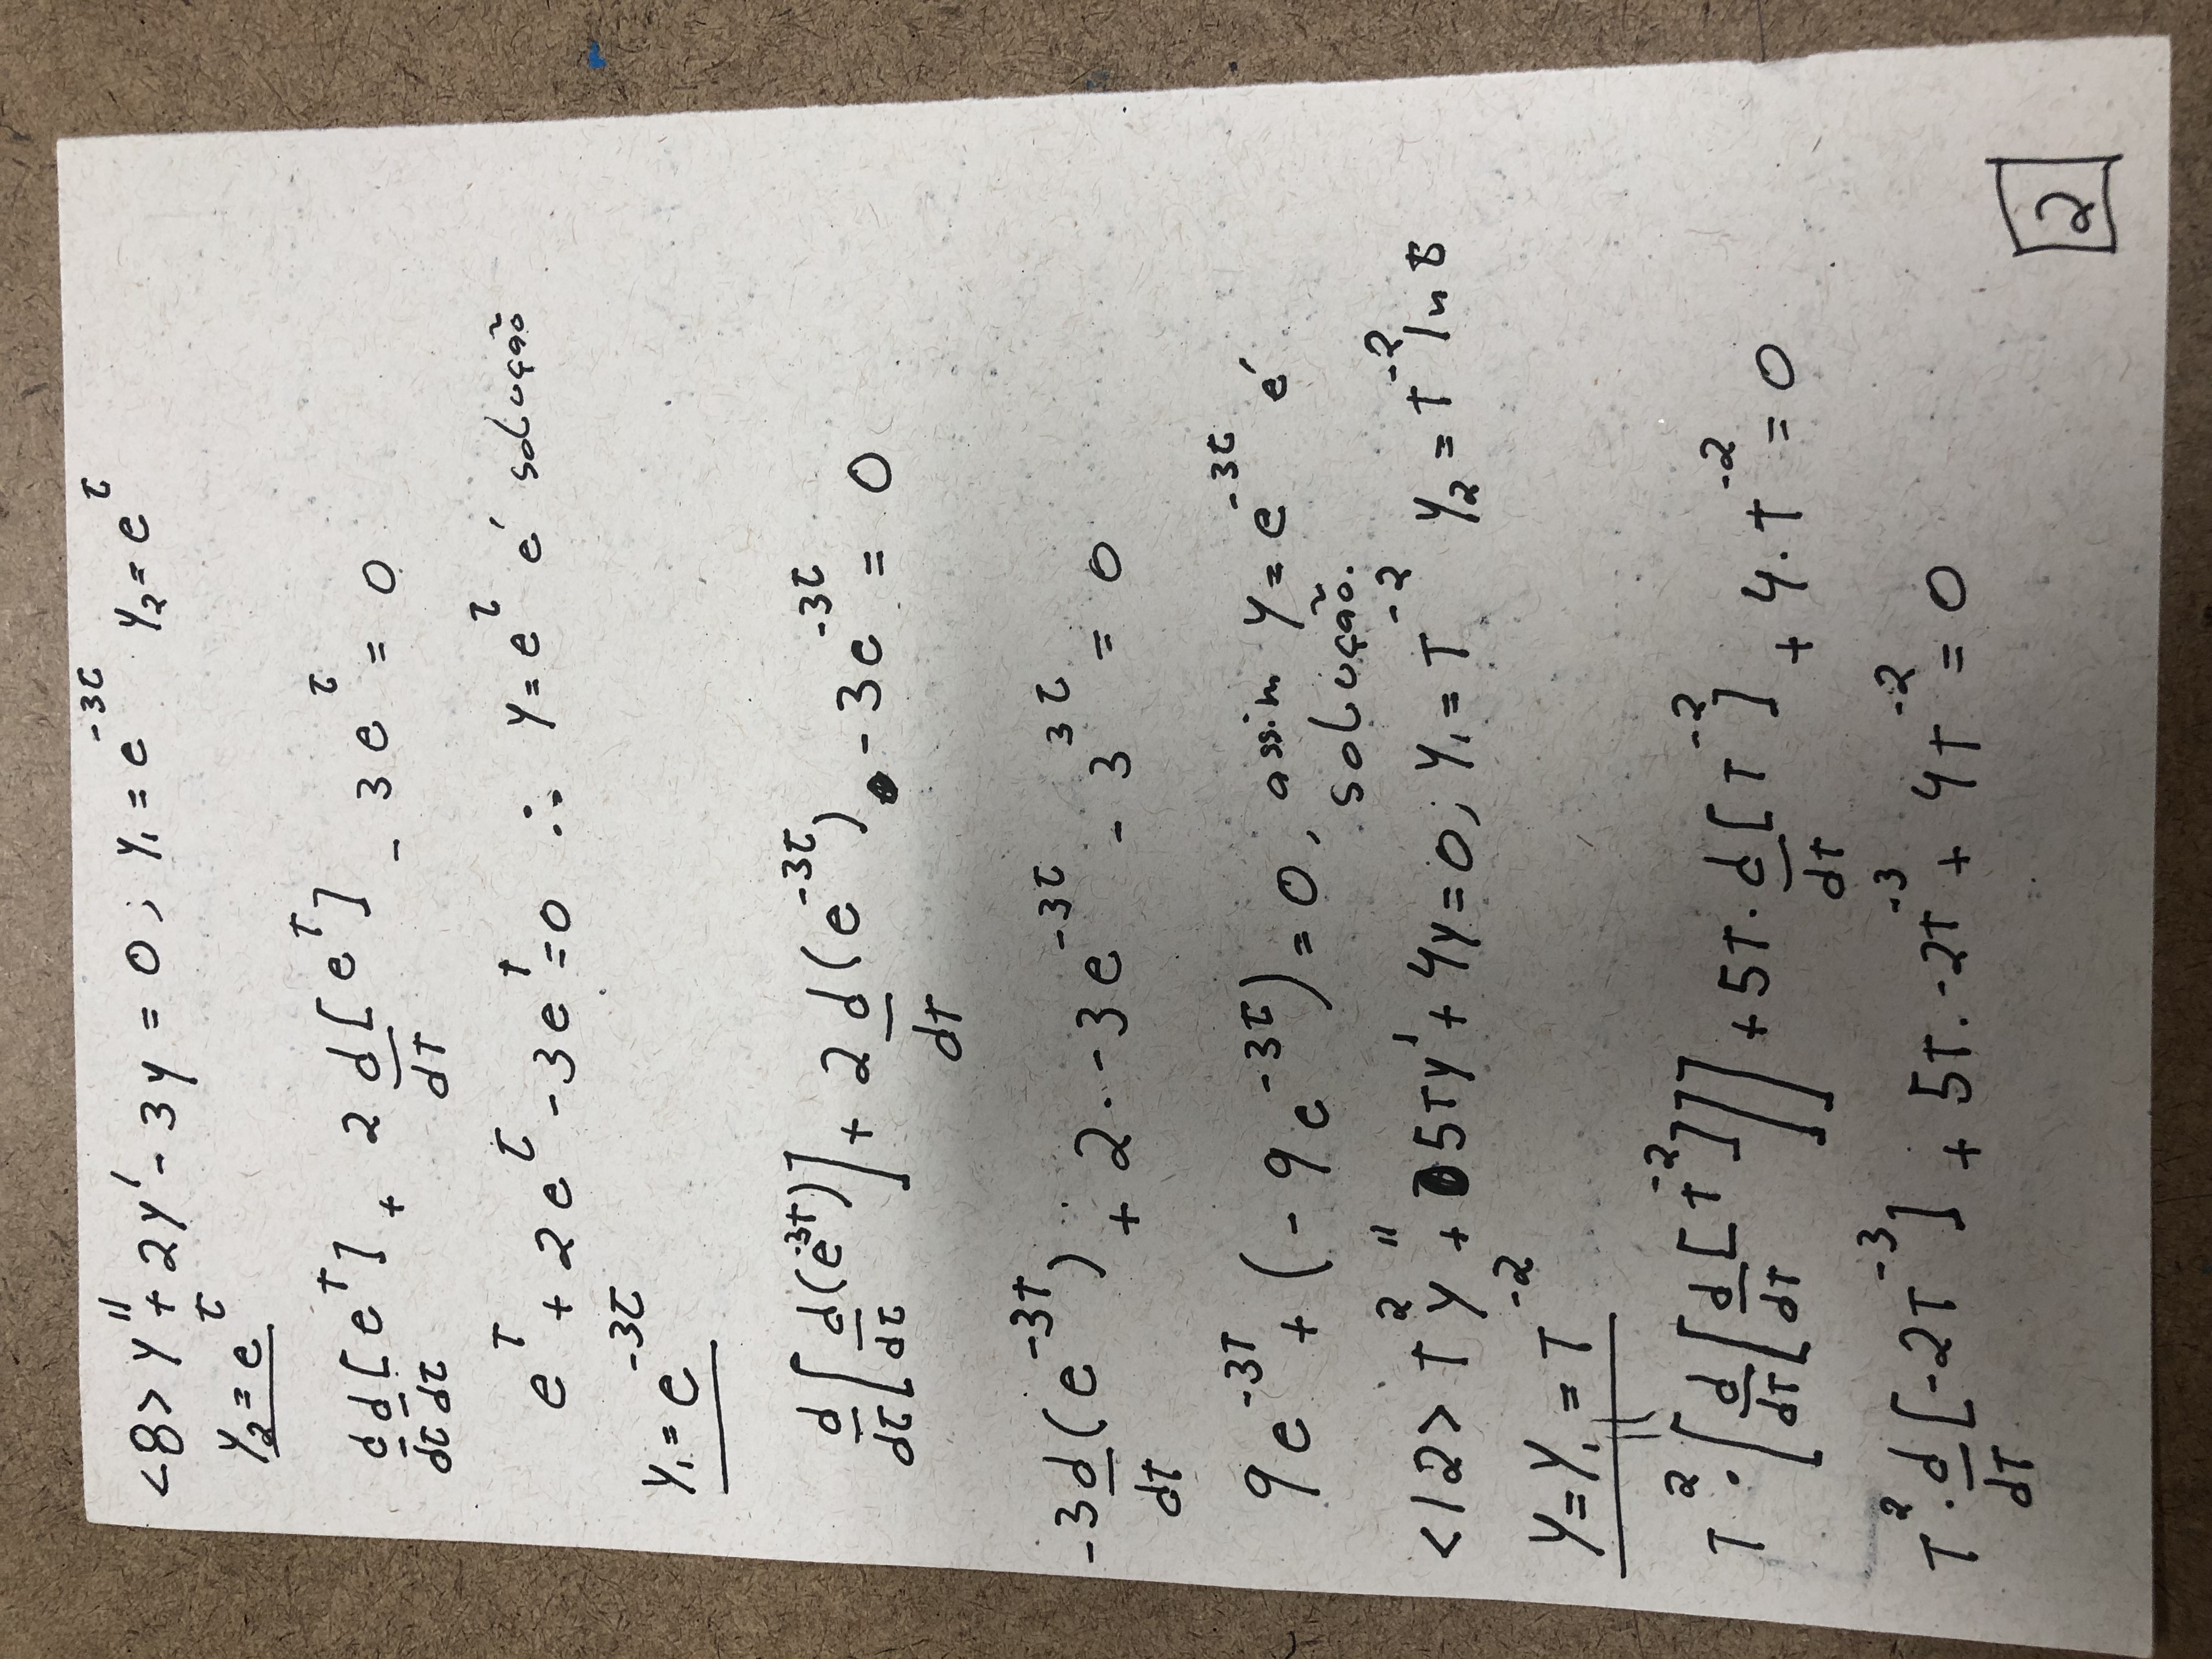 <8> y'' + 2y' - 3y = 0 ; y₁ = e^{-3t} y₂ = e^{t}
y₂ = e^{t}
d/dt d/dt [e^{t}] + 2 d/dt [e^{t}] - 3e^{t} = 0
e^{t} + 2e^{t} - 3e^{t} = 0 ∴ y = e^{t} é solução
y₁ = e^{-3t}
d/dt [d/dt (e^{-3t})] + 2 d/dt (e^{-3t}) - 3e^{-3t} = 0
-3 d/dt (e^{-3t}) + 2 · -3e^{-3t} - 3^{3t} = 0
9e^{-3t} + (-9e^{-3t}) = 0, assim y = e^{-3t} é
solução.
<12> t²y'' + 5ty' + 4y = 0 ; y₁ = t^{-2} y₂ = t^{-2} ln t
y = y₁ = t^{-2}
t² · [d/dt [d/dt [t^{-2}]]] + 5t · d/dt [t^{-2}] + 4 · t^{-2} = 0
t² · d/dt [-2t^{-3}] + 5t · -2t^{-3} + 4t^{-2} = 0
2